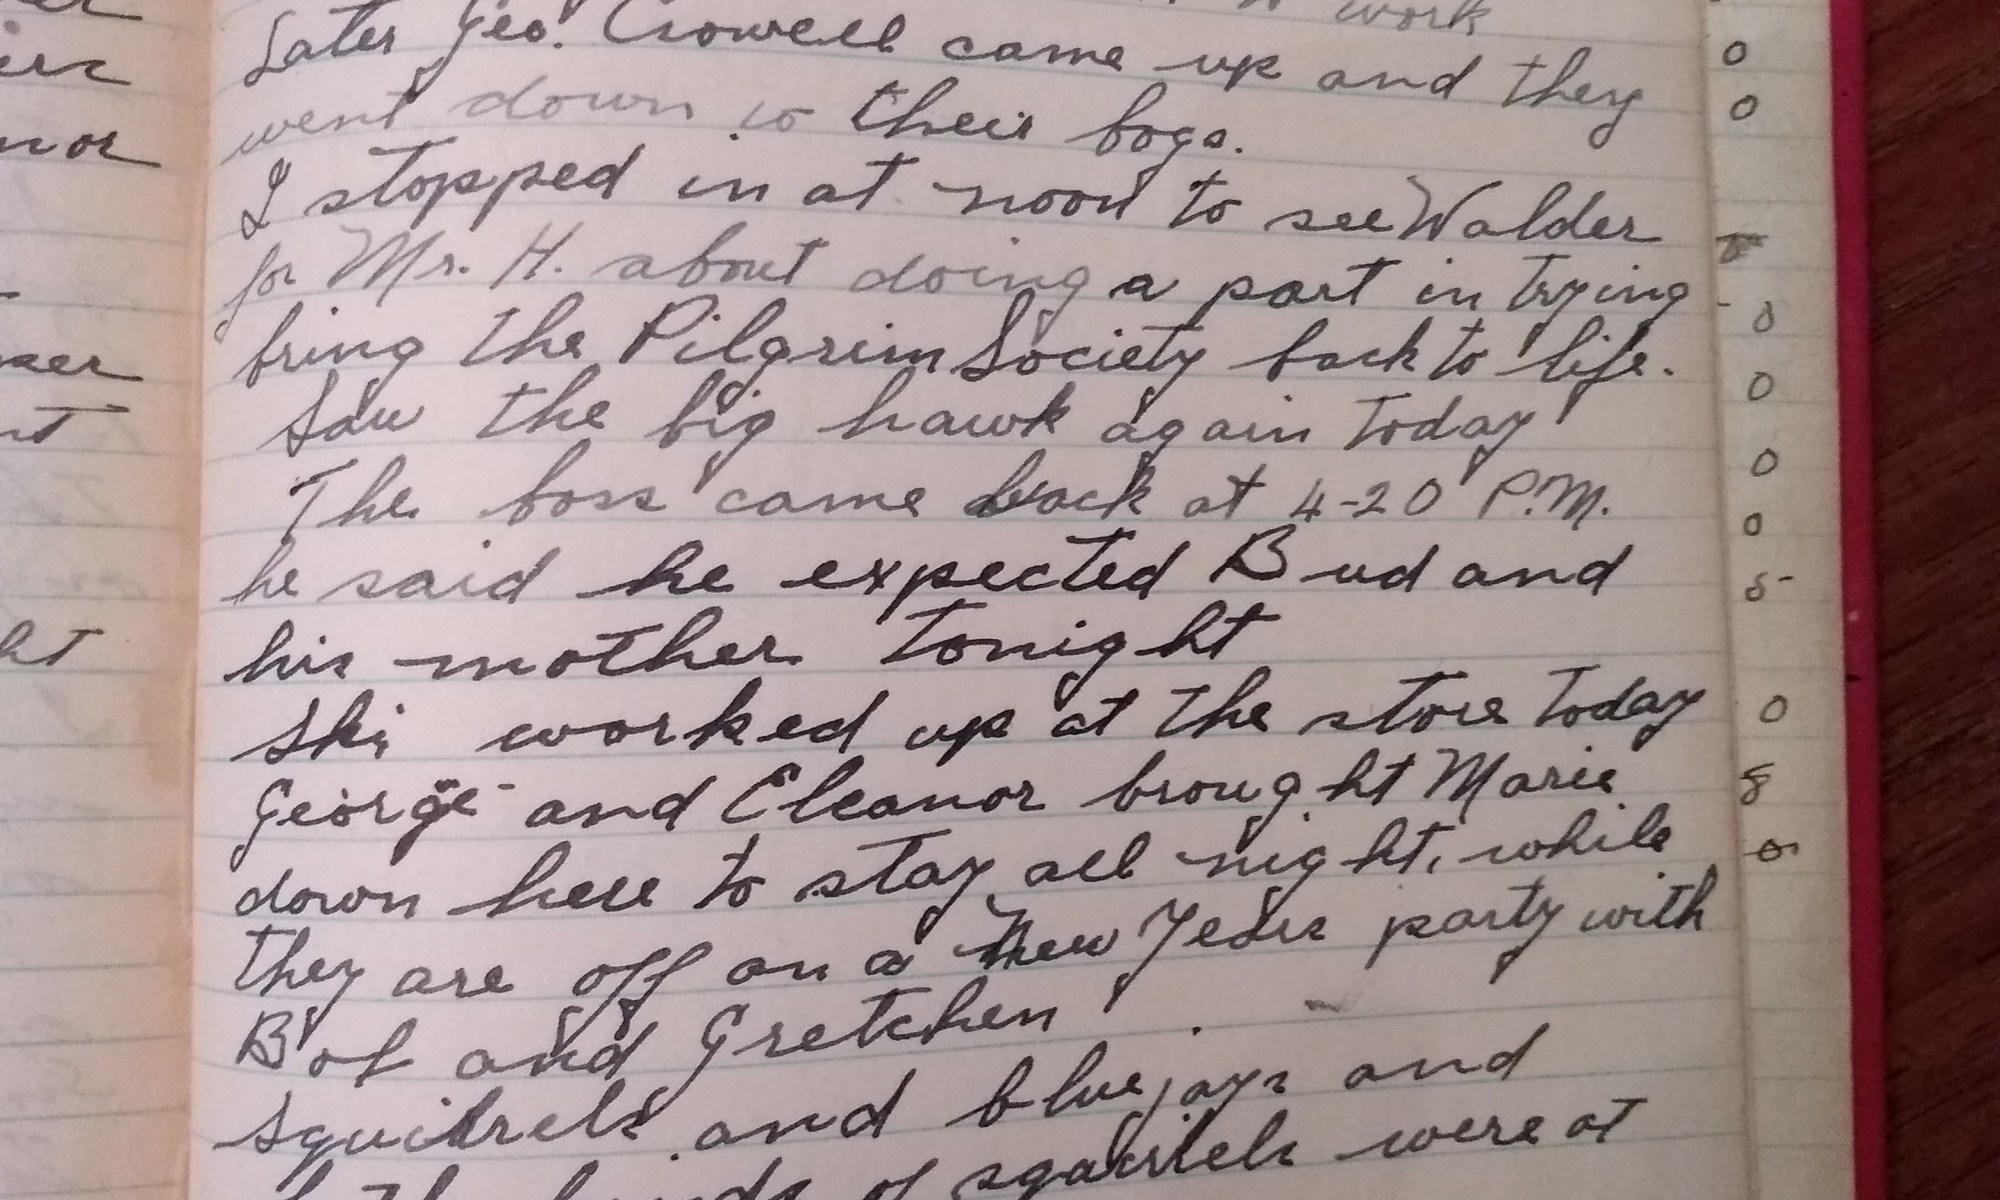 work
Later Geo. Crowell came up and they
went down to their bogs.
I stopped in at noon to see Walder
for Mr. H. about doing a part in trying
bring the Pilgrim Society back to life.
Saw the big hawk again today
The boss came back at 4-20 P.M.
he said he expected Bud and
his mother tonight
Ski worked up at the store today
George and Eleanor brought Marie
down here to stay all night, while
they are off on a New Years party with
Bob and Gretchen
Squirrels and bluejays and
of squirrels were at